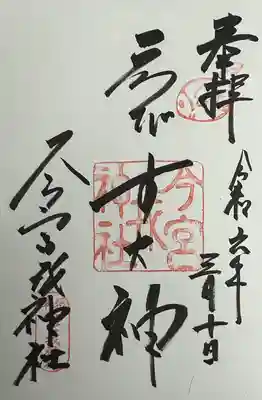 奉拝
令和六年三月十日
ゑびす大神
今宮戎神社
今宮戎神社